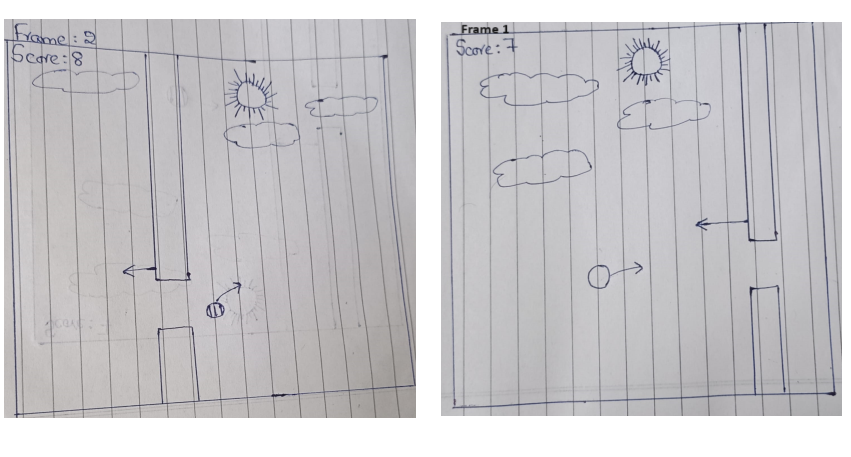 Frame: 2
Score: 8
Frame 1
Score: 7